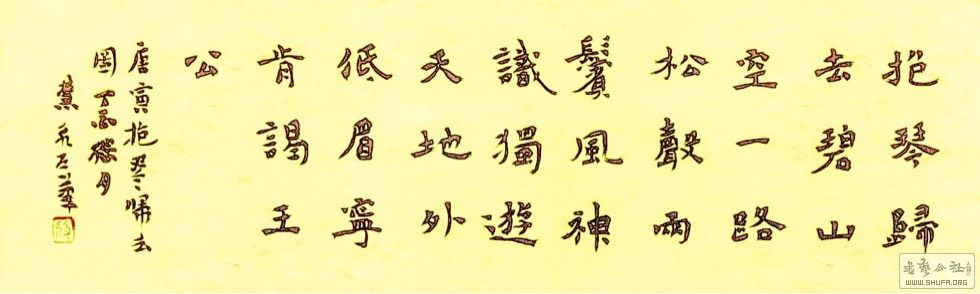 抱琴歸
去碧山
空一路
松聲兩
鬢風神
識獨遊
天地外
低眉寧
肯謁王
公
唐寅抱琴歸去
图
書藝公社
WWW.SHUFA.ORG